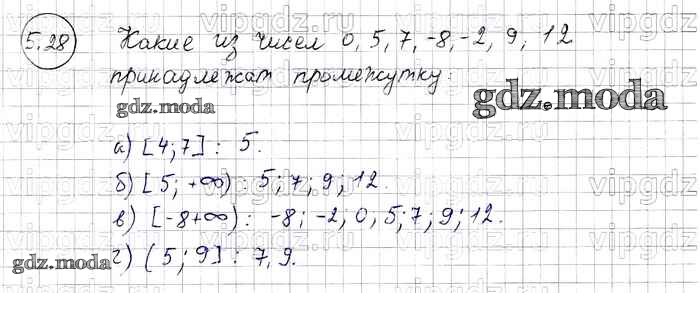 5.28 Какие из чисел 0, 5, 7, -8, -2, 9, 12
принадлежат промежутку:
gdz.moda
gdz.moda
а) [4; 7] : 5.
б) [5; +∞) : 5; 7; 9; 12.
в) [-8+∞) : -8; -2; 0, 5; 7; 9; 12.
г) (5; 9] : 7, 9.
gdz.moda
vipgdz